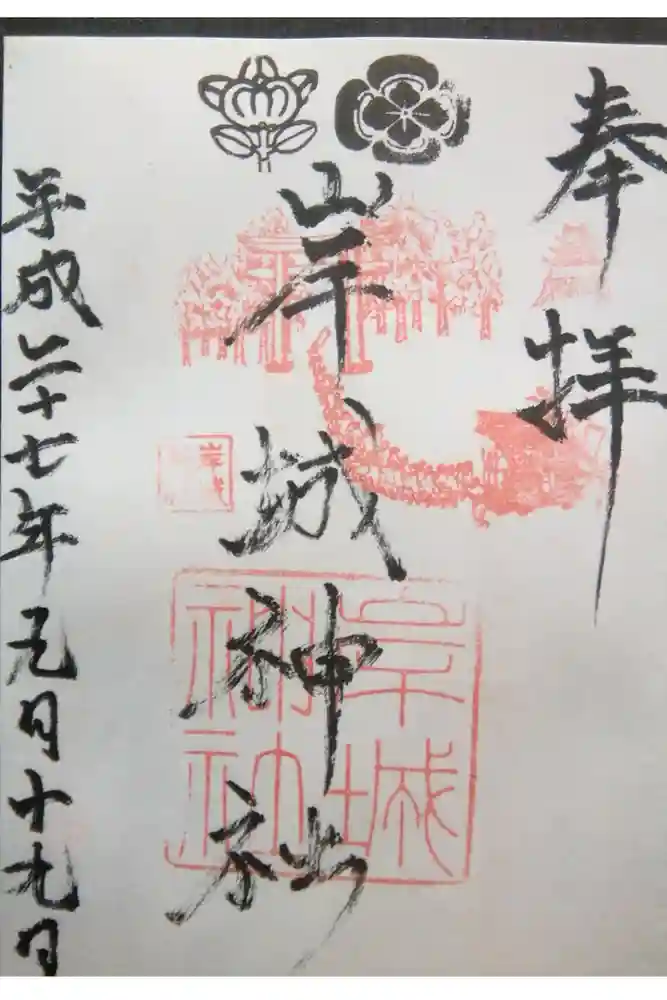 奉拝
岸城神社
平成二十七年五月十九日
岸城
神社